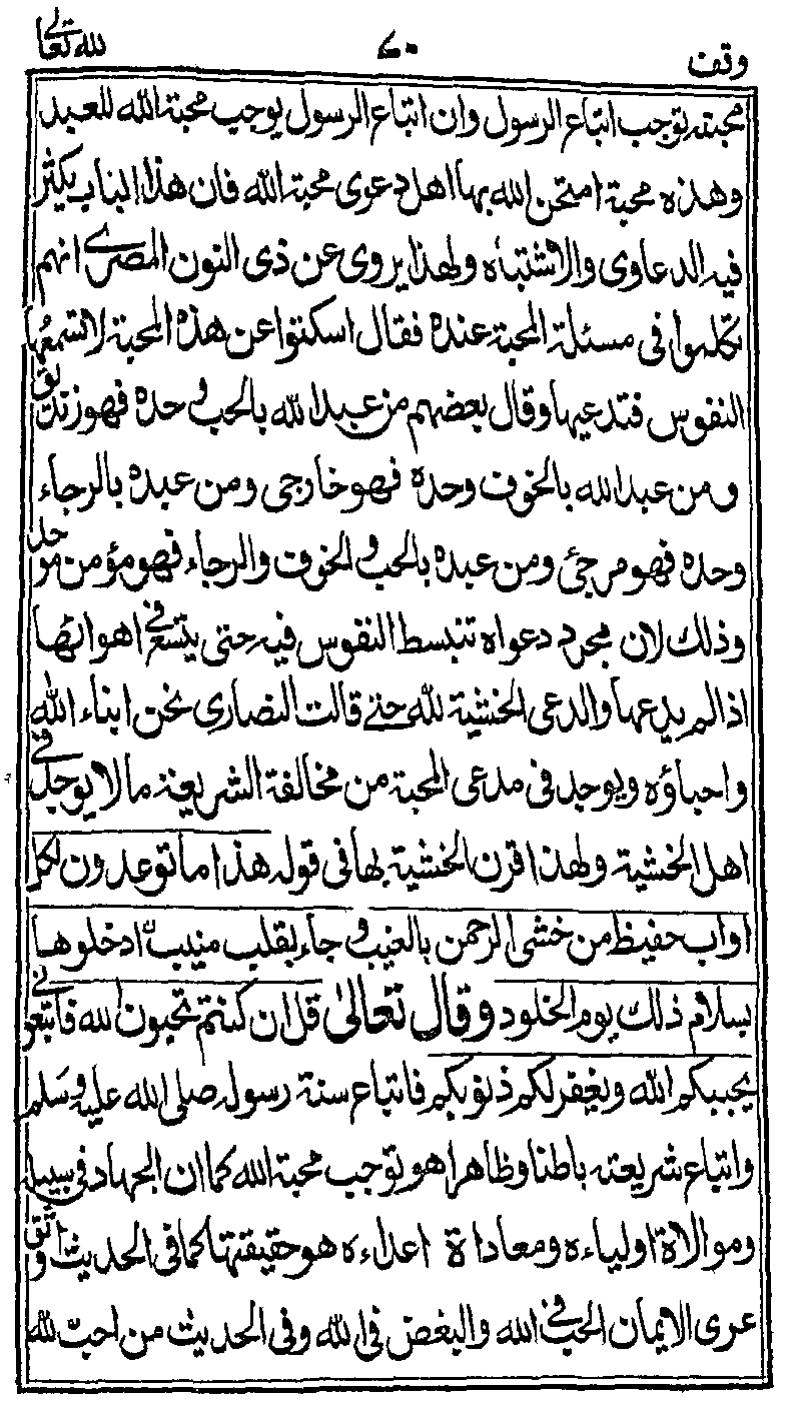 وقف ٧٠ لله تعالى
محبته توجب اتباع الرسول وان اتباع الرسول يوجب محبة الله للعبد
وهذه محبة امتحن الله بها اهل دعوى محبة الله فان هذا الباب يكثر
فيه الدعاوى والاشتباه ولهذا يروى عن ذى النون المصرى انهم
تكلموا فى مسئلة المحبة عنده فقال اسكتوا عن هذه المحبة لاتسمعها
النفوس فتدعيها وقال بعضهم من عبد الله بالحب وحده فهو زنديق
ومن عبد الله بالخوف وحده فهو خارجى ومن عبده بالرجاء
وحده فهو مرجئ ومن عبده بالحب والخوف والرجاء فهو مؤمن موحد
وذلك لان مجرد دعواه تنبسط النفوس فيه حتى يتسع فى اهوائها
اذا لم يدعها والدعى الخشية لله حتى قالت النصارى نحن ابناء الله
واحباؤه ويوجد فى مدعى المحبة من مخالفة الشريعة مالا يوجد فى
اهل الخشية ولهذا قرن الخشية بها فى قوله هذا ما توعدون لكل
اواب حفيظ من خشى الرحمن بالغيب وجاء بقلب منيب ادخلوها
بسلام ذلك يوم الخلود وقال تعالى قل ان كنتم تحبون الله فاتبعونى
يحببكم الله ويغفر لكم ذنوبكم فاتباع سنة رسوله صلى الله عليه وسلم
واتباع شريعته باطنا وظاهرا هو توجب محبة الله كما ان الجهاد فى سبيله
وموالاة اولياءه ومعاداة اعداءه هو حقيقتها كما فى الحديث اوثق
عرى الايمان الحب فى الله والبغض فى الله وفى الحديث من احب لله